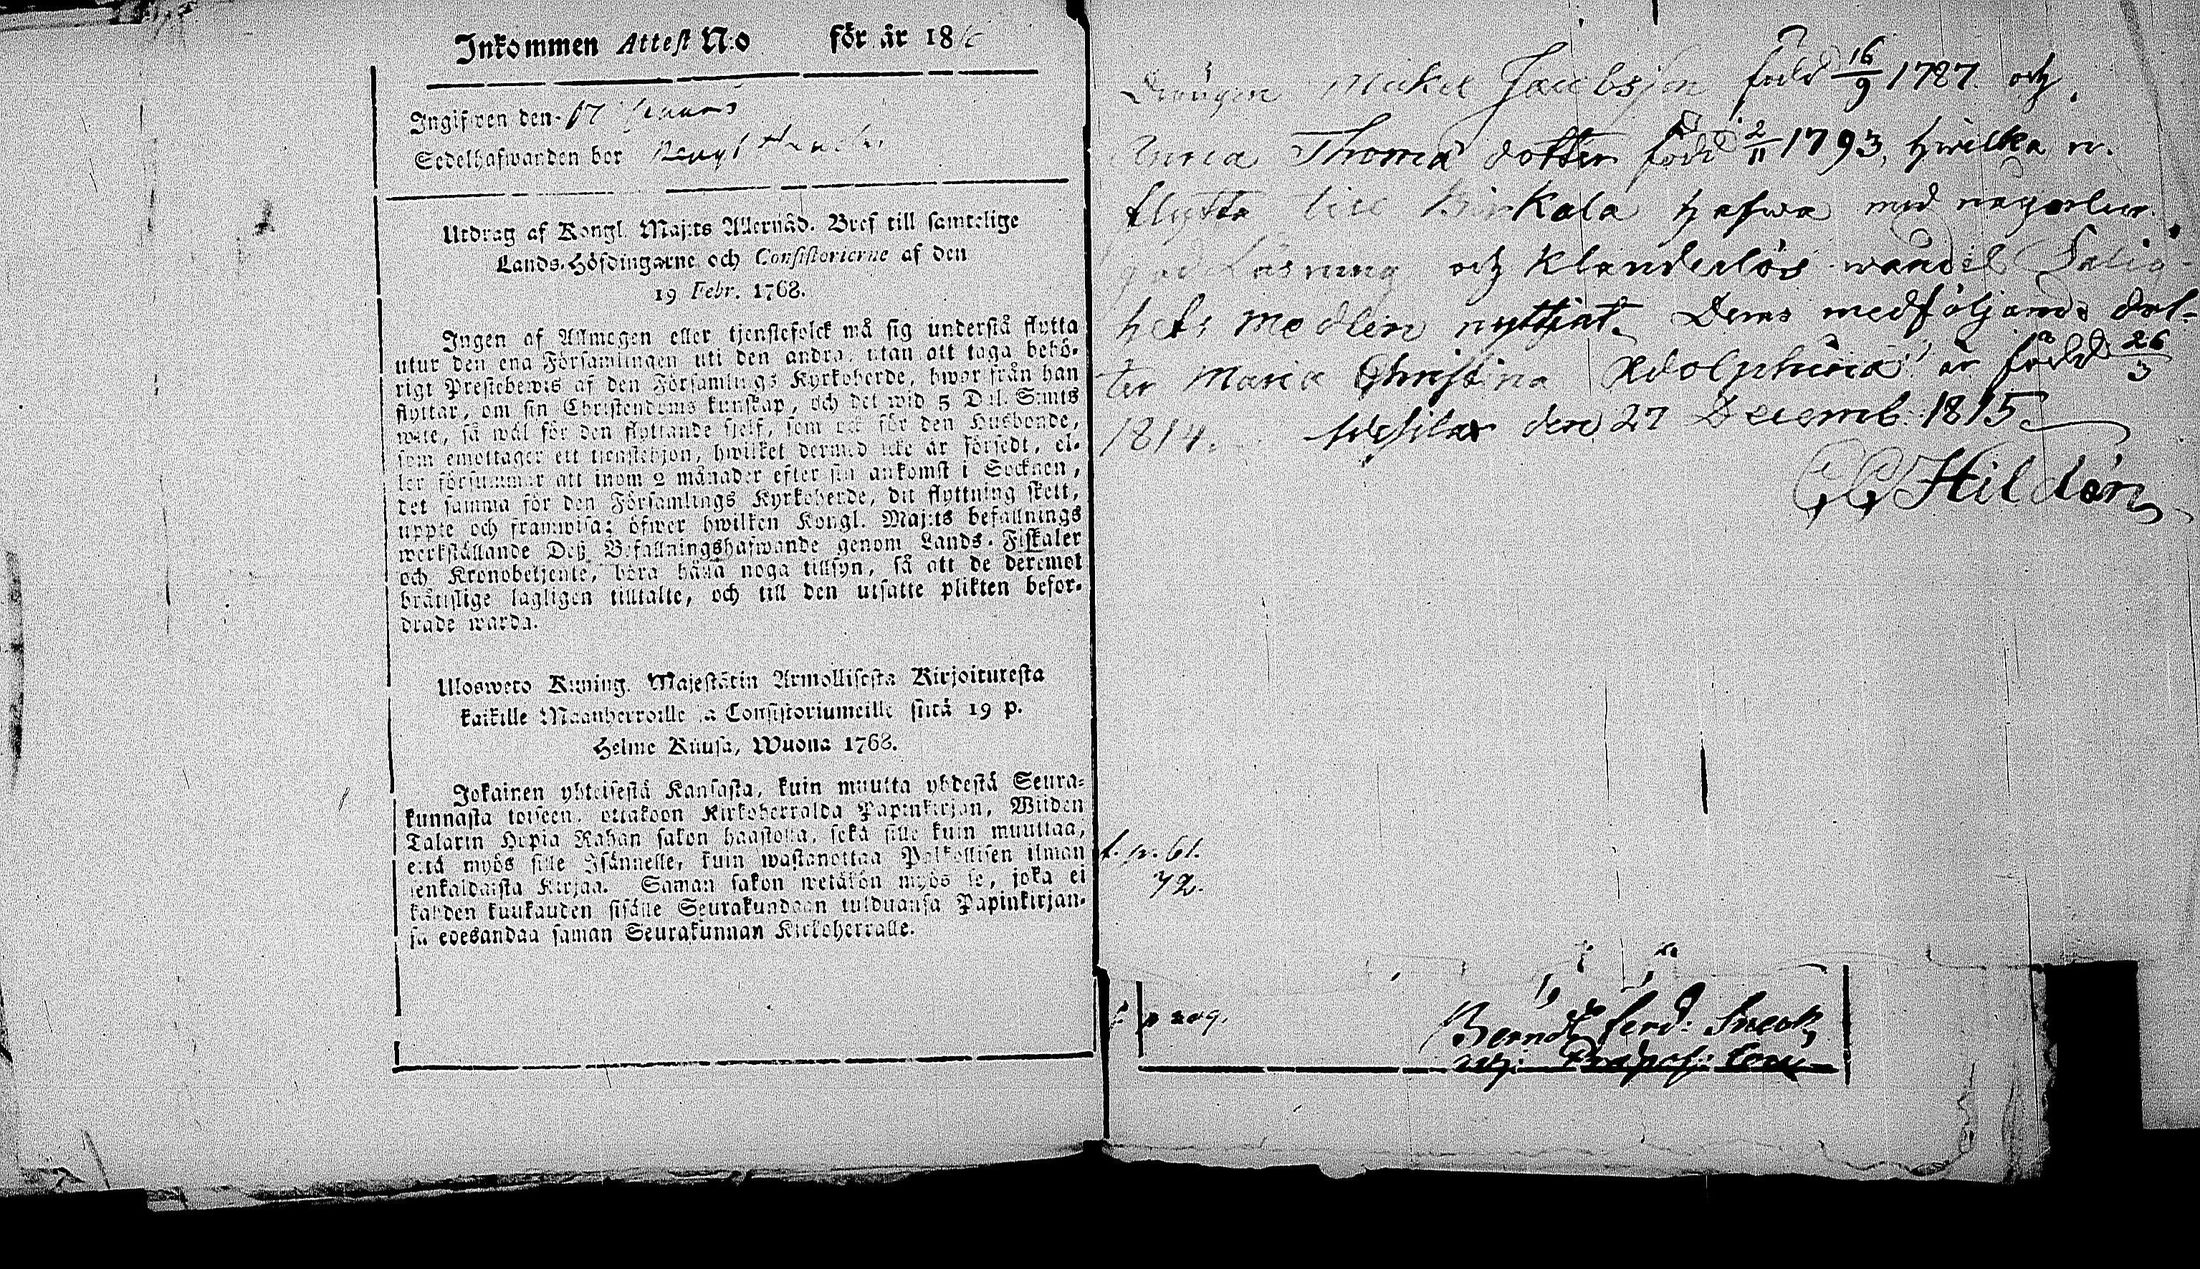 Inkommen Attest N:o för år 18
Ingifwen den 17
Sedelhafwanden bor
Utdrag af Kongl. Maj:ts Allernåd. Bref till samtelige
Lands-Höfdingarne och Consistorierne af den
19 Febr. 1768.
Ingen af Allmogen eller tjenstefolck må sig understå flytta
utur den ena Församlingen uti den andra, utan att taga behö-
rigt Prestebewis af den Församlings Kyrkoherde, hwar från han
flyttar, om sin Christendoms kunskap, och det wid 5 Dal. S:mts
wite, så wäl för den flyttande sjelf, som ock för den Husbonde,
som emottager ett tienstehjon, hwilket dermed icke är försedt, el-
ler försummar att inom 2 månader efter sin ankomst i Socknen,
det samma för den Församlings Kyrkoherde, dit flyttning skett,
uppte och framwisa; öfwer hwilken Kongl. Maj:ts befallnings
werkställande Deß Befallningshafwande genom Lands-Fiskaler
och Kronobetjente, böra hålla noga tillsyn, så att de deremot
bråttslige lagligen tilltalte, och till den utsatte plikten befor-
drade warda.
Ulosweto Kuning. Majestätin Armollisesta Kirjoituresta
kaikille Maanherroille ja Consistoriumeille siitä 19 p.
Helme Kuusa, Wuona 1768.
Jokainen yhteisestä Kansasta, kuin muutta yhdestä Seura-
kunnasta toiseen, ottakoon Kirkoherralda Papinkirjan, Wiiden
Talarin Hopia Rahan sakon haastolla, sekä sille kuin muuttaa,
että myös sille Isännelle, kuin wastanottaa Palkollisen ilman
senkaldaista Kirjaa. Saman sakon wetäkön myös se, joka ei
kahden kuukauden sisälle Seurakundaan tulduansa Papinkirjan-
sa edesandaa saman Seurakunnan Kirkoherralle.
Drängen Mickel Jacobsson född 16/9 1787 och
Anna Thomä dotter född 2/11 1793, hwilka
flytta till Birkala hafwa med någorlun
god Läsning och klanderlös wandel Salig-
hets medlen nyttjat. Deras medföljande dot-
ter Maria Christina Adolphina är född 26/3
1814. Wesilax den 27 Decemb. 1815.
Hildén
f. p. 61.
72.
p 209.
Berndt Ferd: